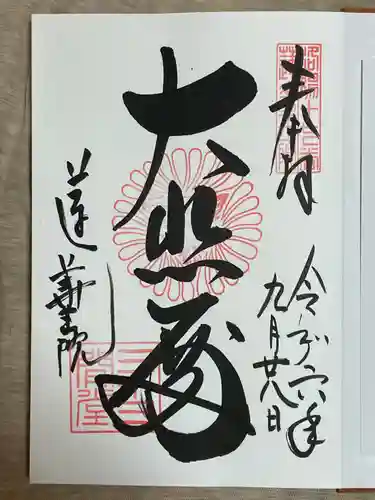 奉拝
令和六年
九月廿八日
大悲殿
蓮華王院